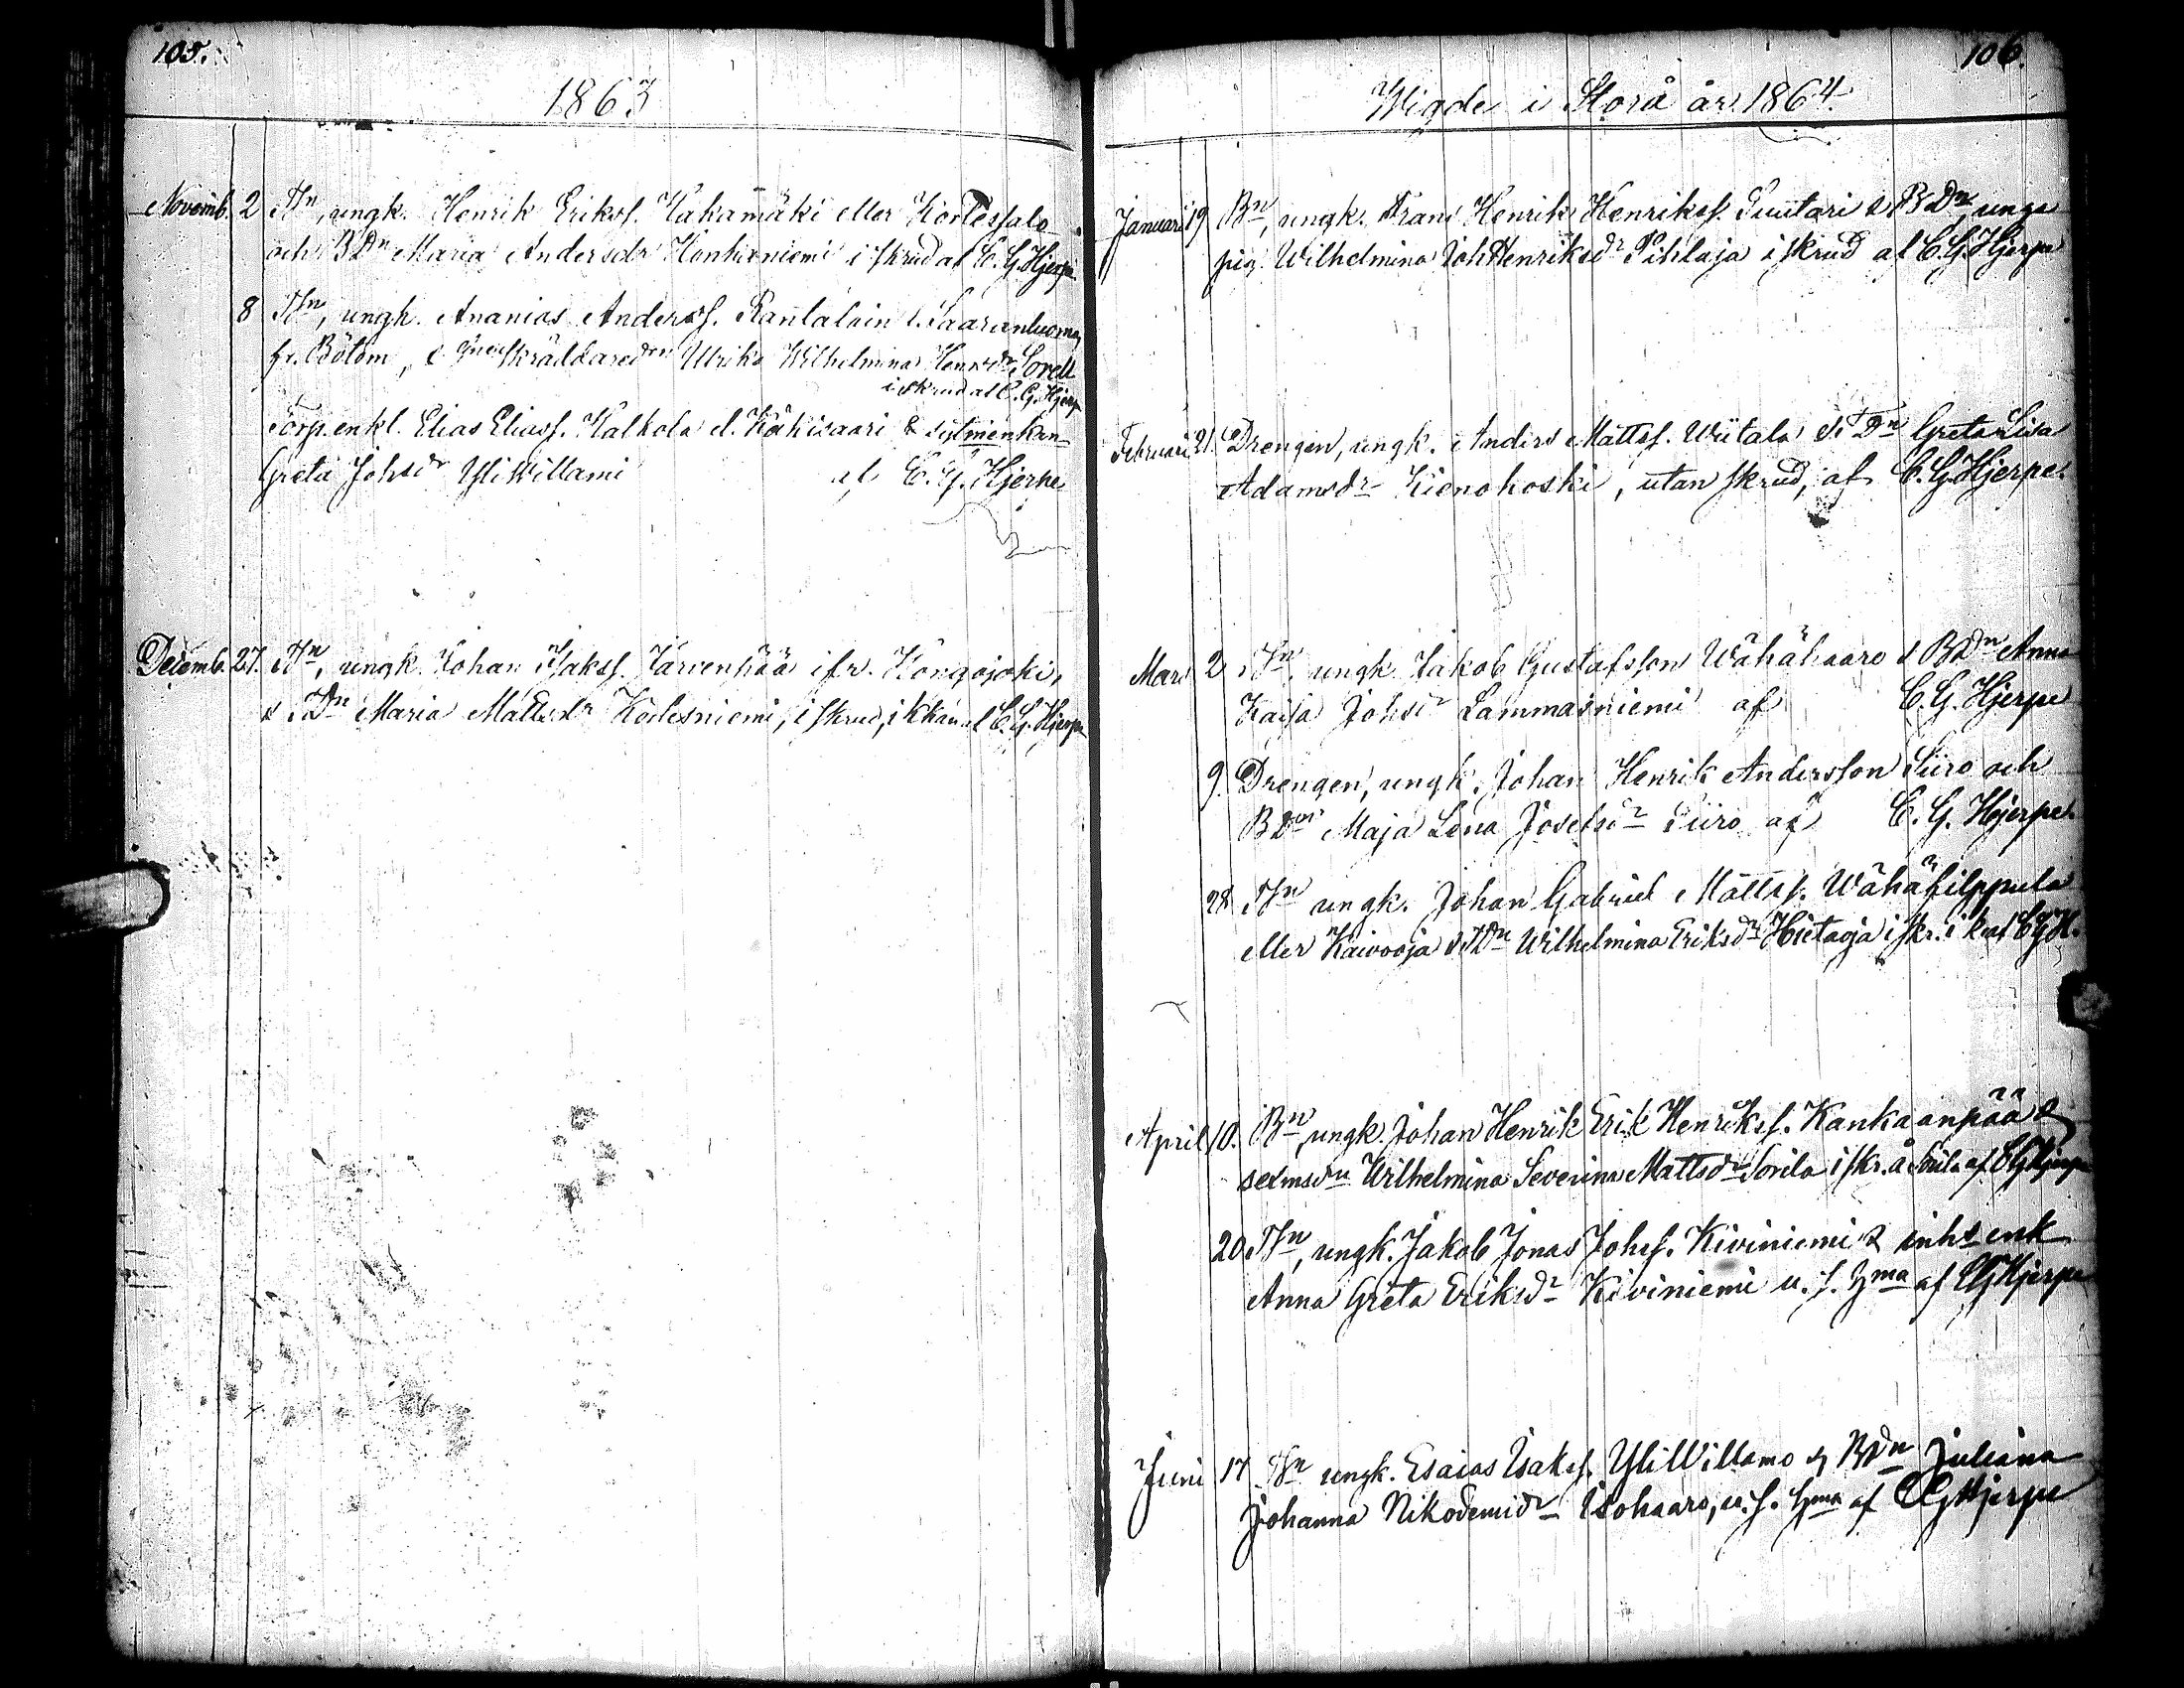 105.
1863
Novemb. 2 Tn, ungk. Henrik Erikss. Kakamäki eller Kortessalo
och BDn Maria Andersdr Honkaniemi i skrud af C. G. Hjerpe
8 Tn, ungk. Ananias Anderss. Rantalain l. Saarenluoma,
fr. Bötom, & skräddaredn Ulrika Wilhelmina Henrsdr Sorell
i skrud af C. G. Hjerp
Torp.enkl. Elias Eliass. Kalkola el. Käkisaari & sytnienkan
Greta Johsdr YliWillami af C. G. Hjerpe
Decemb. 27. Tn, ungk. Johan Isakss. Järvenpää ifr. Kongojoki,
& TDn Maria Mattsdr Kodesniemi, i skrud, i kkan af C. G. Hjerpe
106.
Wigde i Storå år 1864.
Januari 19 Bn, ungk. Frans Henrik Henrikss. Suutari & BDn, unga
pig. Wilhelmina JohHenriksdr Pihlaja i skrud af C. G. Hjerpe
Februari 21. Drengen, ungk. Anders Mattss. Wiitala & TDn Greta Lisa
Adamsdr Kienokoski, utan skrud, af C. G. Hjerpe.
Mars 2 Tn, ungk. Jakob Gustafsson Wähähaaro & BDn Anna
Kaisa Johsdr Lammasniemi af C. G. Hjerpe
9. Drengen, ungk. Johan Henrik Andersson Siiro och
BDn Maja Lena Josefsdr Siiro af C. G. Hjerpe.
28 Tn ungk. Johan Gabriel Mattss. Wähäfilppula
eller Kaivooja & TDn Wilhelmina Eriksdr Hietaoja i skr. i k af CGH.
April 10. Bn, ungk. Johan Henrik Erik Henrikss. Kankaanpää &
sexmsdn Wilhelmina Severina Mattsdr Sorila i skr. å Sorila af CGHjerpe
20 Tn, ungk. Jakob Jonas Johss. Kiviniemi & inhs enk
Anna Greta Eriksdr Kiviniemi u. s. hma af CGHjerpe
Juni 17 Tn ungk. Esaias Isakss. YliWillamo & BDn Juliana
Johanna Nikodemidr Isohaaro, u. s. hma af CGHjerpe